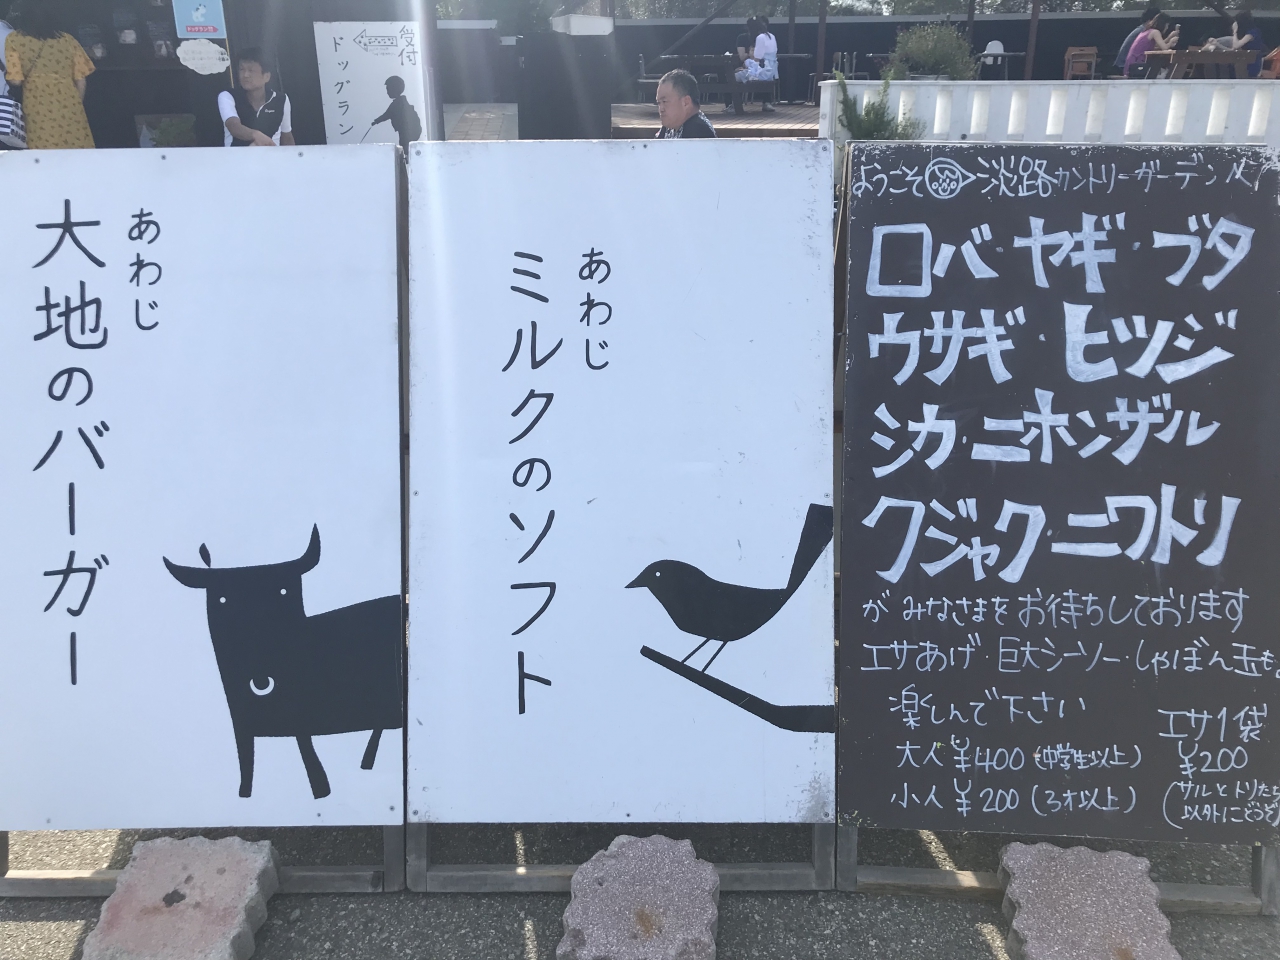 受付
ドッグラン
あわじ
大地のバーガー
あわじ
ミルクのソフト
ようこそ淡路カントリーガーデンへ
ロバ・ヤギ・ブタ
ウサギ・ヒツジ
シカ・ニホンザル
クジャク・ニワトリ
がみなさまをお待ちしております
エサあげ・巨大シーソー・しゃぼん玉も
楽しんで下さい
大人 ¥400 (中学生以上)
小人 ¥200 (3才以上)
エサ1袋
¥200
(サルとトリたち
以外にどうぞ)